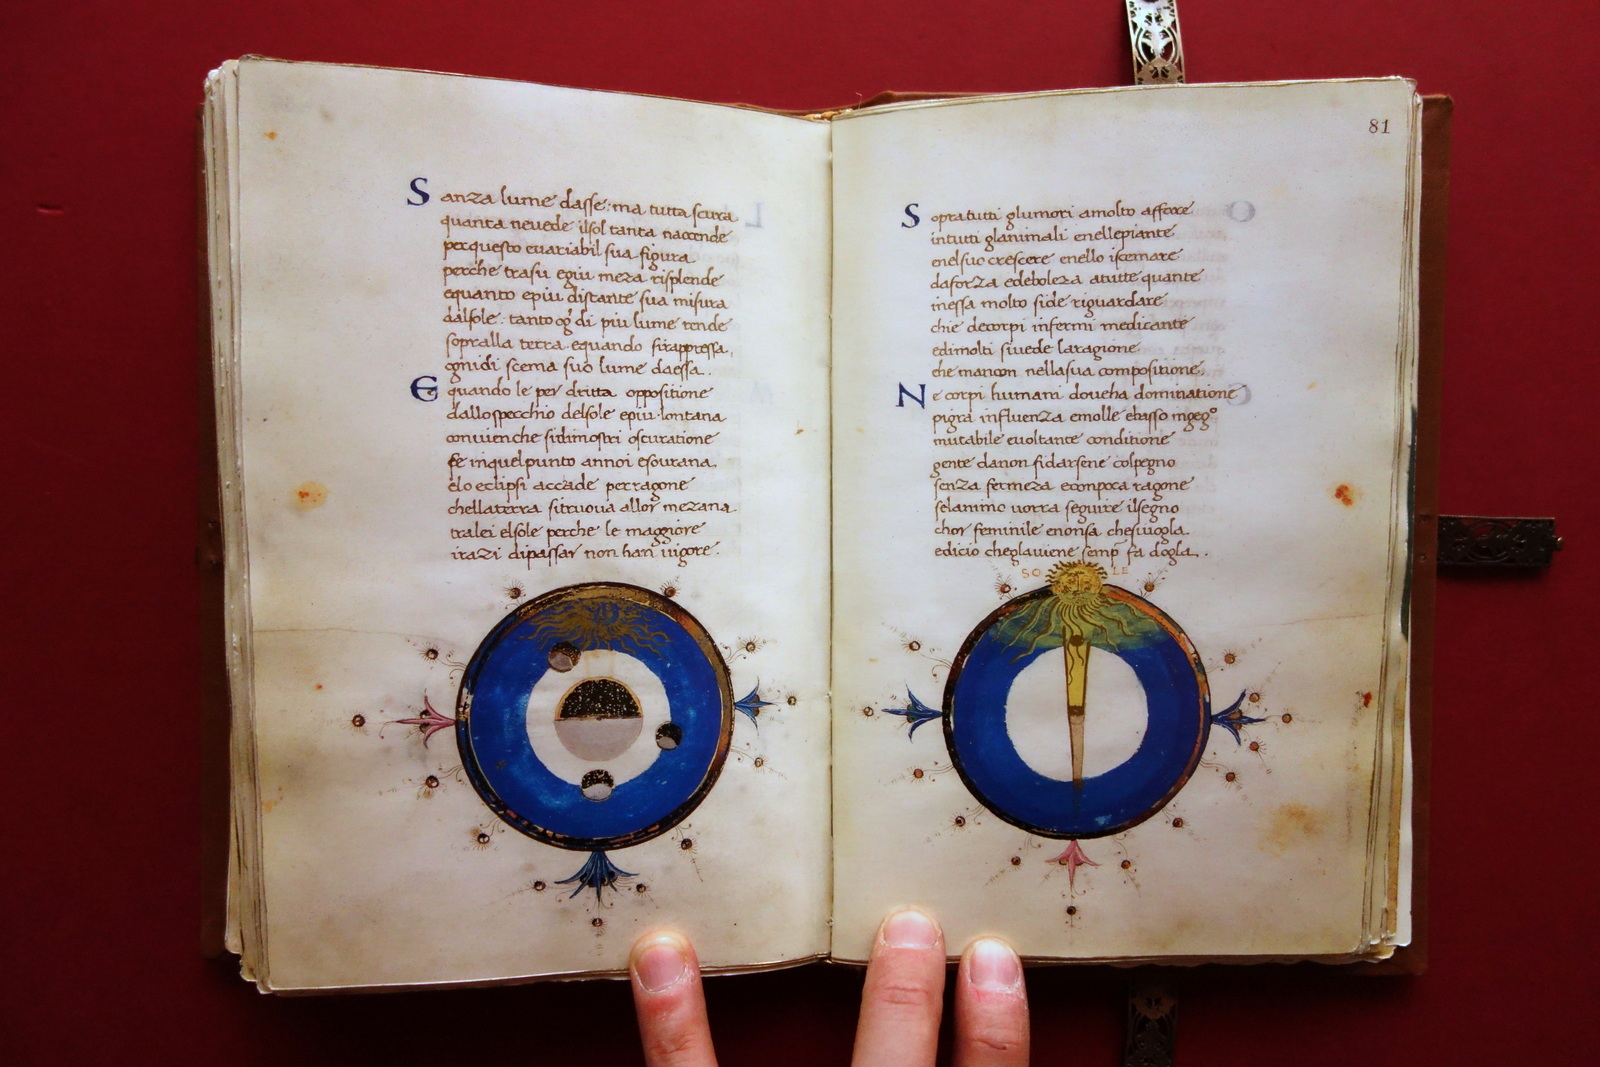 Sanza lume dasse: ma tutta scura
quanta nevede ilsol tanta naccende
perquesto evariabil sua figura
perche trasu egiu meza risplende
equanto epiu distante sua misura
dalsole. tanto og̃ di piu lume rende
sopralla terra. equando sirappressa,
ognidi scema suo lume daessa.
Equando le per dritta oppositione
dallospecchio delsole epiu lontana
convienche sidimostri oscuratione
se inquelpunto annoi esourana.
elo eclipsi accade perragone
chellaterra sitruova allor mezana
tralei elsole perche le maggiore
irazi dipassar non han vigore.
81
Sopratutti glumori amolto affare
intutti glanimali enellepiante
enelsuo crescere enello iscemare
daforza edeboleza atutte quante
inessa molto side riguardare
chie decorpi infermi medicante
edimolti sivede laragione
che mancon nellasua compositione.
Ne corpi humani doveha dominatione
pigra influenza emolle ebasso ingegº
mutabile evoltante conditione
gente danon fidarsene colpegno
senza fermeza ecompoca ragone
selanimo vorra seguire ilsegno
chor feminile enonsa chesivogla
edicio cheglaviene semp̃ fa dogla.
SO LE